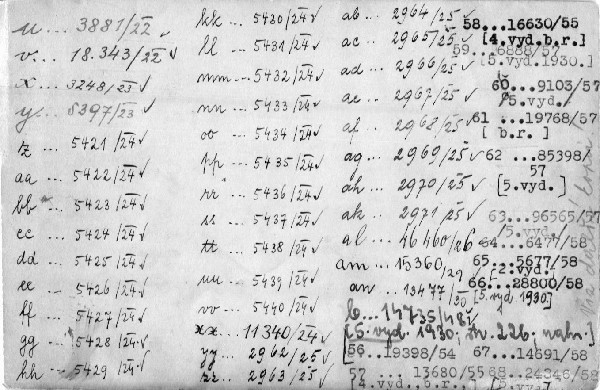 u ... 3881/22 ✓
v... 18.343/22 ✓
x ... 3248/23 ✓
y... 8397/23 ✓
z ... 5421/24 ✓
aa ... 5422/24 ✓
bb ... 5423/24 ✓
cc ... 5424/24 ✓
dd ... 5425/24 ✓
ee ... 5426/24 ✓
ff ... 5427/24 ✓
gg ... 5428/24 ✓
hh ... 5429/24 ✓
kk ... 5430/24 ✓
ll ... 5431/24 ✓
mm ... 5432/24 ✓
nn ... 5433/24 ✓
oo ... 5434/24 ✓
pp ... 5435/24 ✓
rr ... 5436/24 ✓
ss ... 5437/24 ✓
tt ... 5438/24 ✓
uu ... 5439/24 ✓
vv ... 5440/24 ✓
xx... 11340/24 ✓
yy ... 2962/25 ✓
zz ... 2963/25 ✓
ab .. 2964/25 ✓
ac ... 2965/25 ✓
ad ... 2966/25 ✓
ae ... 2967/25 ✓
af ... 2968/25 ✓
ag ... 2969/25 ✓
ah ... 2970/25 ✓
ak ... 2971/25 ✓
al .. 46460/26 ✓
am ... 15360/29 ✓
an ... 13477/30 [5. vyd. 1930]
b... 14735/48 ✓
[5. vyd. 1930; zn. 226; nahr.]
56 ...19398/54
57 ... 13680/55
[4.vyd..b.r.]
58...16630/55
[4.vyd.b.r.]
59...6888/57
[5.vyd.1930.]
60...9103/57
/5.vyd./
61 ...19768/57
[ b.r. ]
62 ...85398/
57
[5.vyd.]
63...96565/57
/5.vyd./
64...6477/58
65...5677/58
/2.vyd./
66...28800/58
67...14691/58
68...24346/58